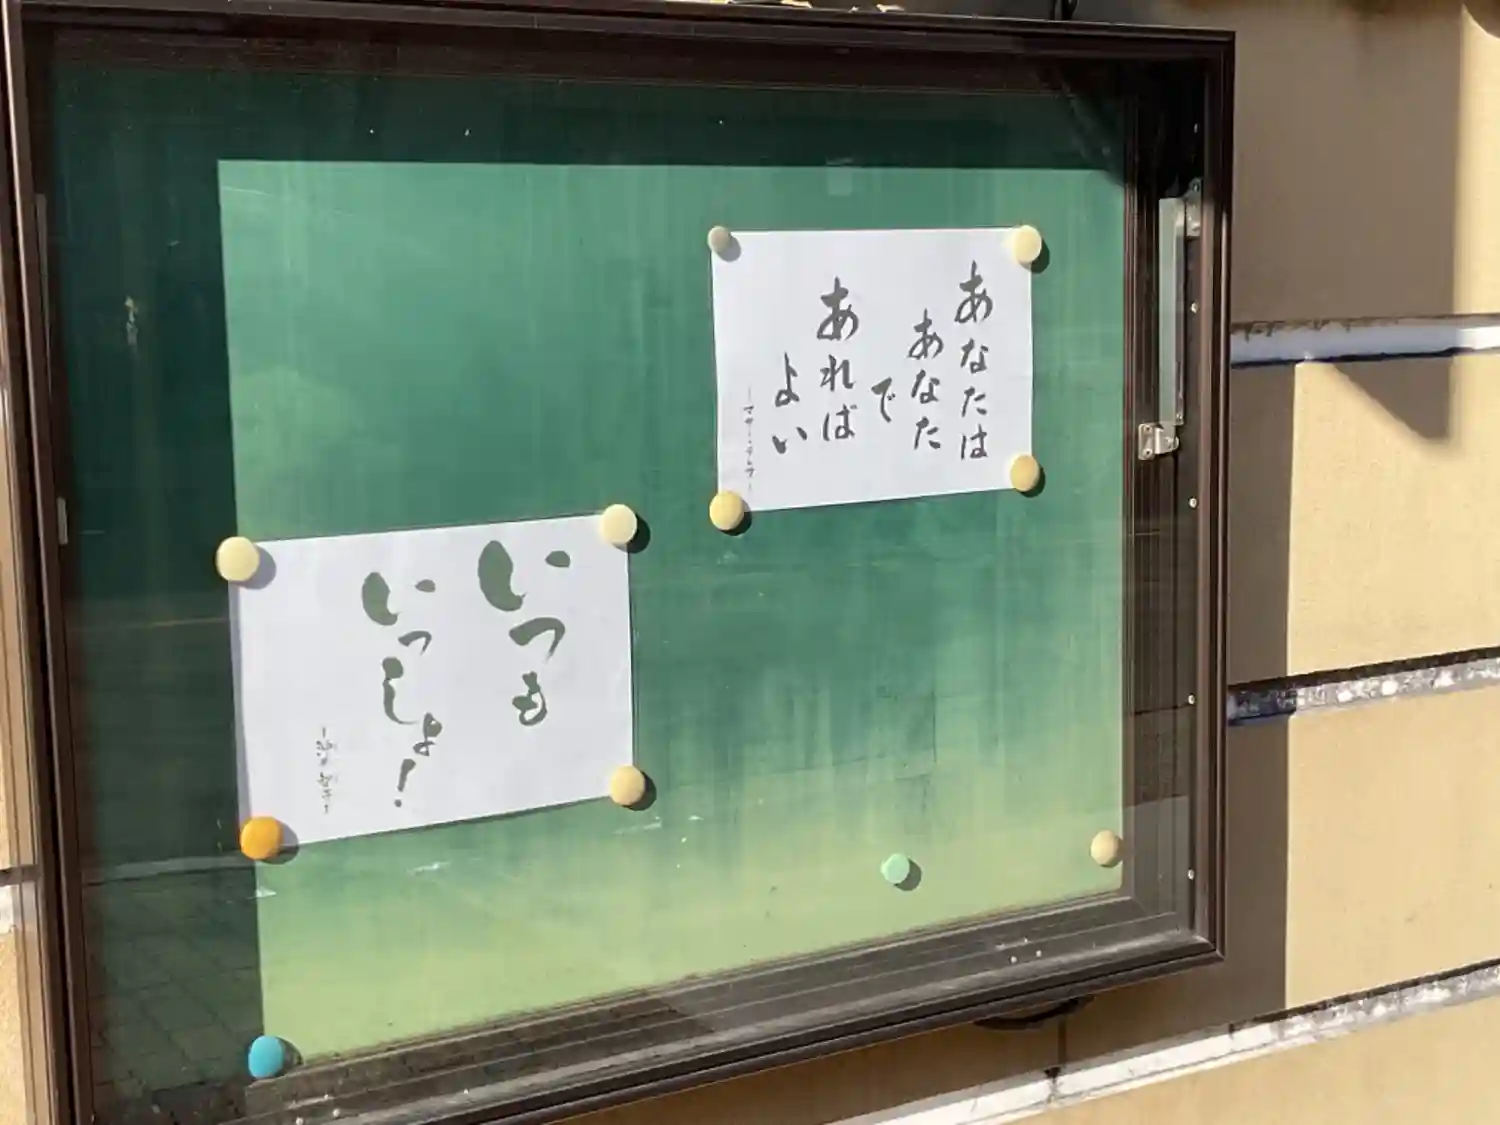 あなたは
あなた
で
あれば
よい
―マザー・テレサ―
いつも
いっしょ!